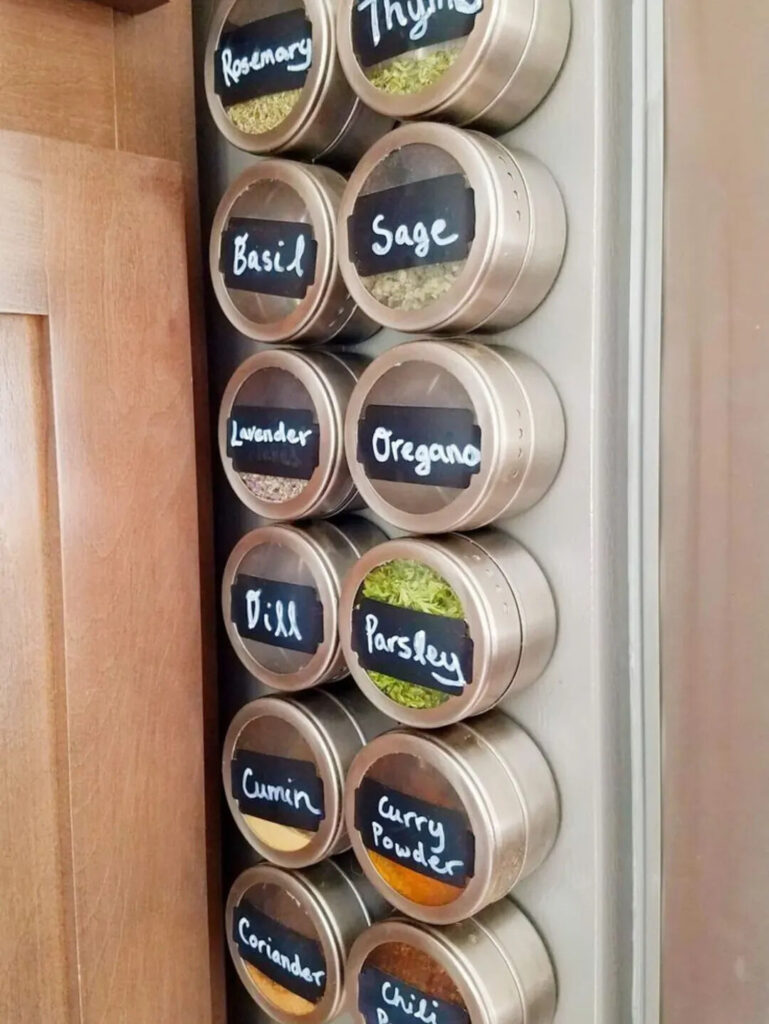 Rosemary
Thyme
Basil
Sage
Lavender
Oregano
Dill
Parsley
Cumin
Curry
Powder
Coriander
Chili